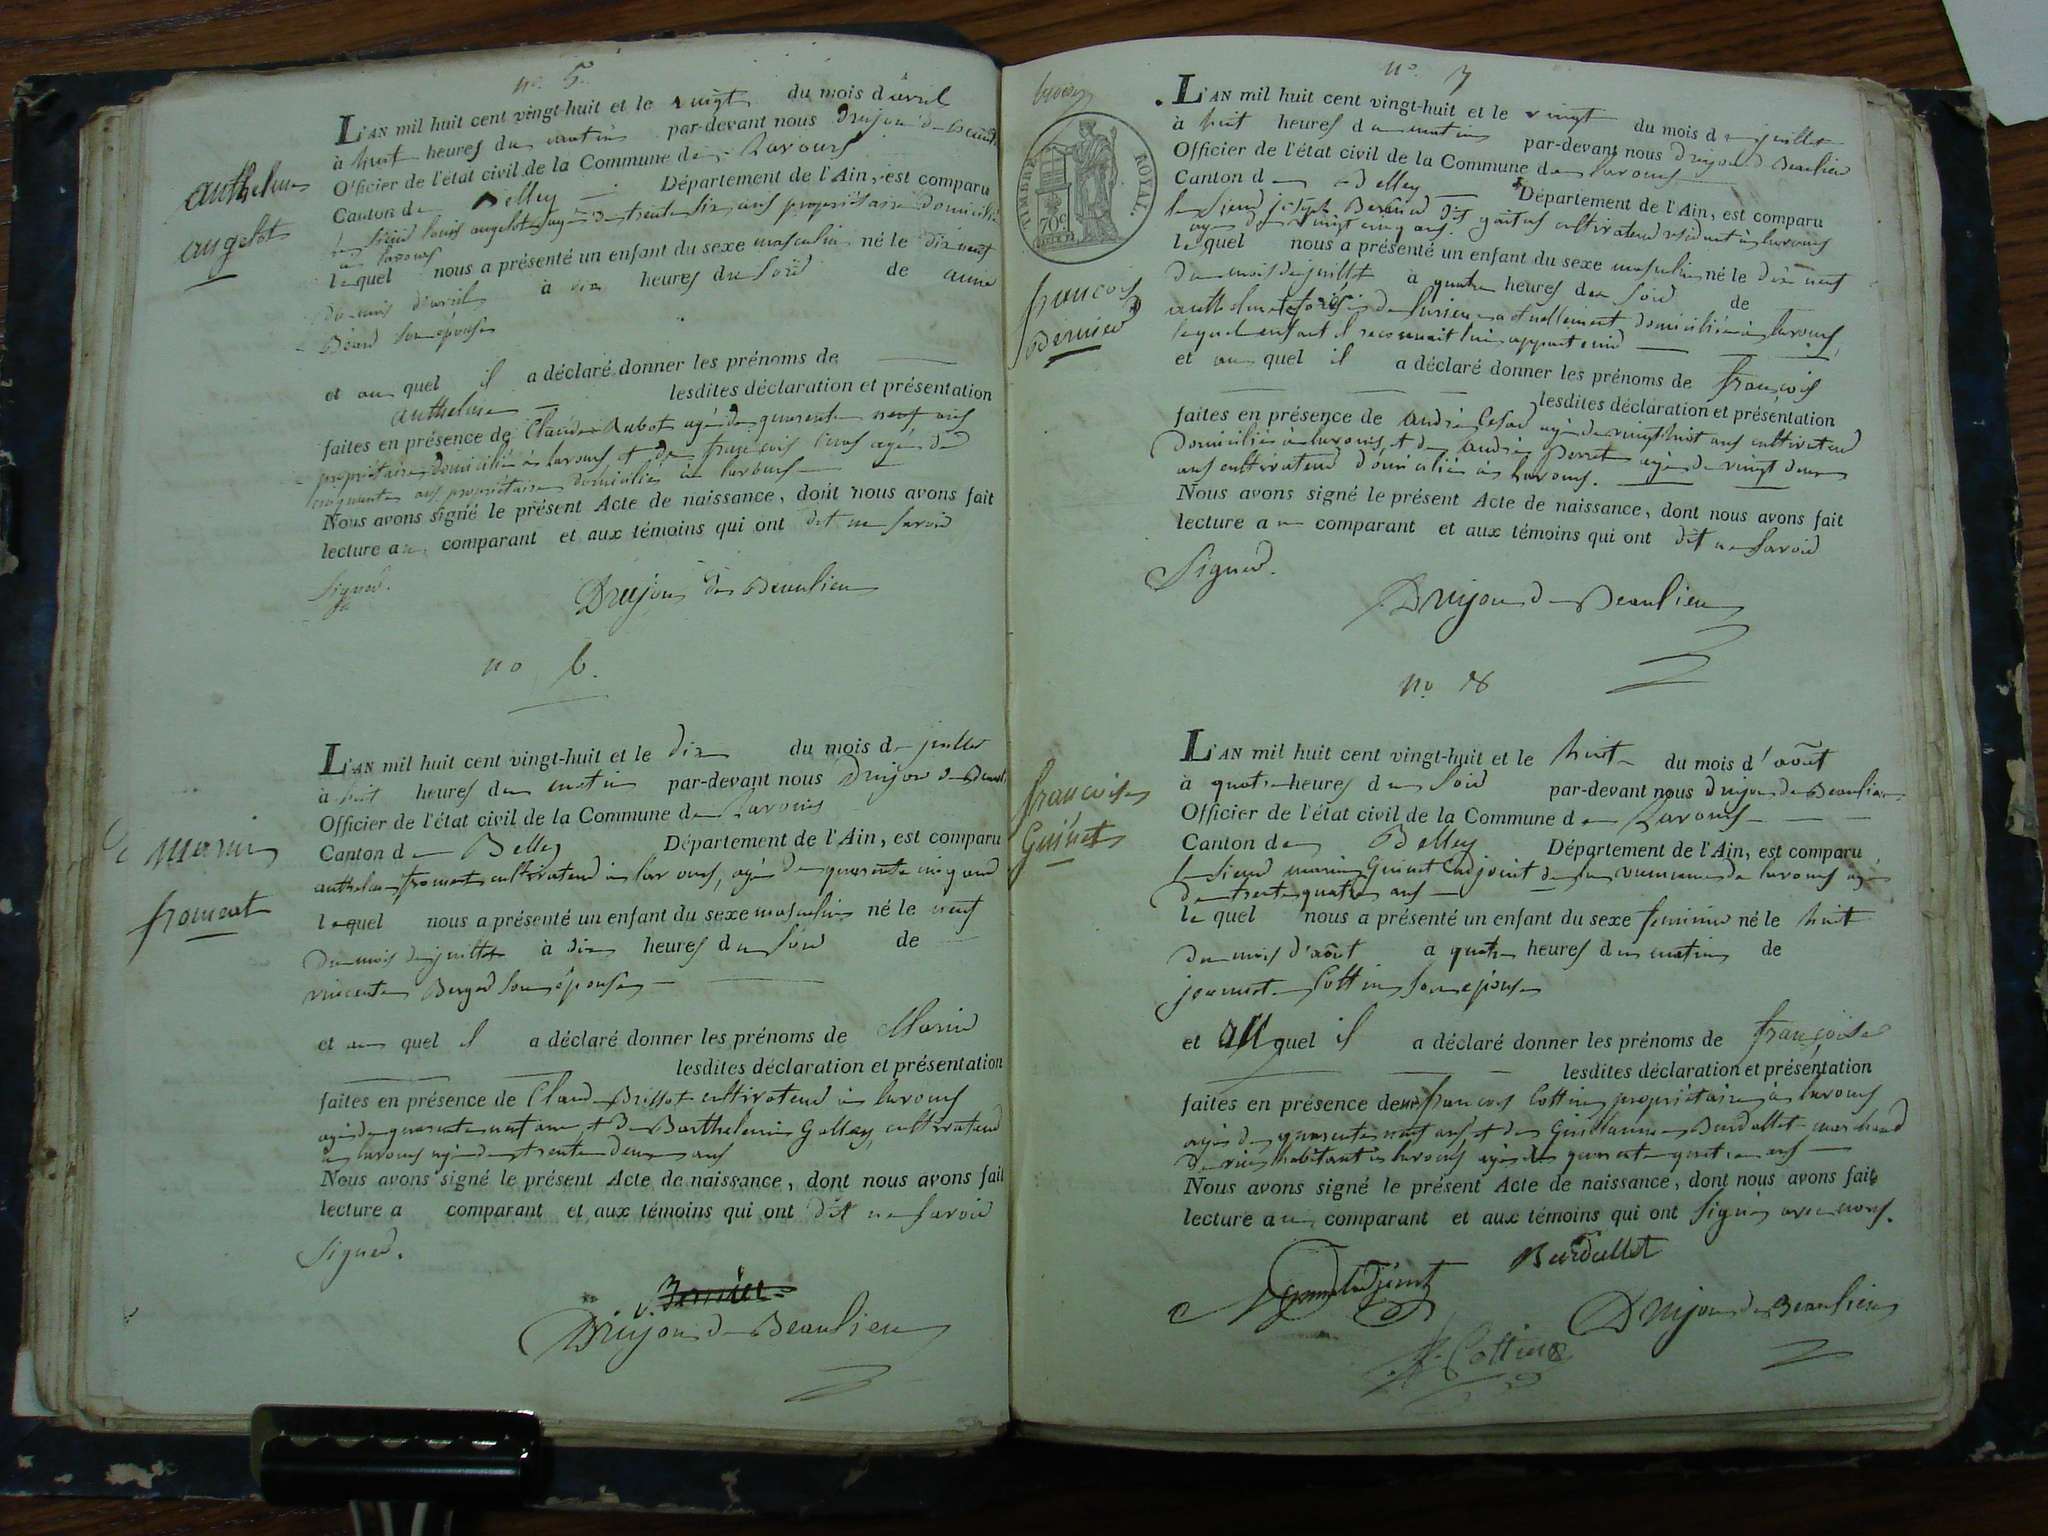 no. 5.
L'AN mil huit cent vingt-huit et le vingt du mois d'avril
à huit heures du matin par-devant nous Drujon de Beaulieu
Officier de l'état civil de la Commune de Lavours
Canton de Belley Département de l'Ain, est comparu
le sieur louis angelot agé de trente six ans propriétaire domicilié
à lavours
lequel nous a présenté un enfant du sexe masculin né le dix neuf
du mois d'avril à heures du soir de
son épouse
et au quel il a déclaré donner les prénoms de
anthelme lesdites déclaration et présentation
faites en présence de Claude agé de quarante neuf ans
propriétaire domicilié à lavours et de françois agé de
cinquante ans propriétaire domicilié à lavours
Nous avons signé le présent Acte de naissance, dont nous avons fait
lecture au comparant et aux témoins qui ont dit ne savoir
signer.
Drujon de Beaulieu
anthelme
angelot
no 6.
L'AN mil huit cent vingt-huit et le dix du mois de juillet
à huit heures du matin par-devant nous Drujon de Beaul
Officier de l'état civil de la Commune de Lavours
Canton de Belley Département de l'Ain, est comparu
anthelme froment cultivateur à lavours, agé de quarante cinq ans
lequel nous a présenté un enfant du sexe masculin né le neuf
du mois de juillet à dix heures du soir de
son épouse
et au quel il a déclaré donner les prénoms de Marin
lesdites déclaration et présentation
faites en présence de Claude Brissot cultivateur à lavours
agé de quarante neuf ans et de Barthelemi Galley cultivateur
à lavours agé de trente deux ans
Nous avons signé le présent Acte de naissance, dont nous avons fait
lecture a comparant et aux témoins qui ont dit ne savoir
signer.
Drujon de Beaulieu
Marin
froment
no. 7
L'AN mil huit cent vingt-huit et le vingt du mois de juillet
à huit heures du matin par-devant nous Drujon de Beaulieu
Officier de l'état civil de la Commune de lavours
Canton de Belley Département de l'Ain, est comparu
le sieur joseph Bernier dit cultivateur résidant à lavours
agé de vingt cinq ans.
lequel nous a présenté un enfant du sexe masculin né le dix neuf
du mois de juillet à quatre heures du soir de
actuellement domiciliée à lavours,
lequel enfant il reconnait lui appartenir
et au quel il a déclaré donner les prénoms de françois
lesdites déclaration et présentation
faites en présence de andré Cesar agé de vingt huit ans cultivateur
domicilié à lavours, et de andré Perret agé de vingt deux
ans cultivateur domicilié à lavours.
Nous avons signé le présent Acte de naissance, dont nous avons fait
lecture au comparant et aux témoins qui ont dit ne savoir
Signer.
Drujon de Beaulieu
TIMBRE ROYAL.
70c
françois
Bernier
no. 8
L'AN mil huit cent vingt-huit et le huit du mois d'août
à quatre heures du soir par-devant nous drujon de Beaulieu
Officier de l'état civil de la Commune de Lavours
Canton de Belley Département de l'Ain, est comparu
le sieur marin Guinet adjoint de la commune de lavours agé
de trente quatre ans
le quel nous a présenté un enfant du sexe feminin né le huit
du mois d'août à quatre heures du matin de
jeannet Cottin son épouse
et au quel il a déclaré donner les prénoms de françoise
lesdites déclaration et présentation
faites en présence de françois Cottin propriétaire à lavours
agé de quarante neuf ans, et de Guillaume Burdallet marchand
habitant à lavours, agé de quarante quatre ans
Nous avons signé le présent Acte de naissance, dont nous avons fait
lecture au comparant et aux témoins qui ont signé avec nous.
Burdallet
Drujon de Beaulieu
Cottin
françoise
Guinet